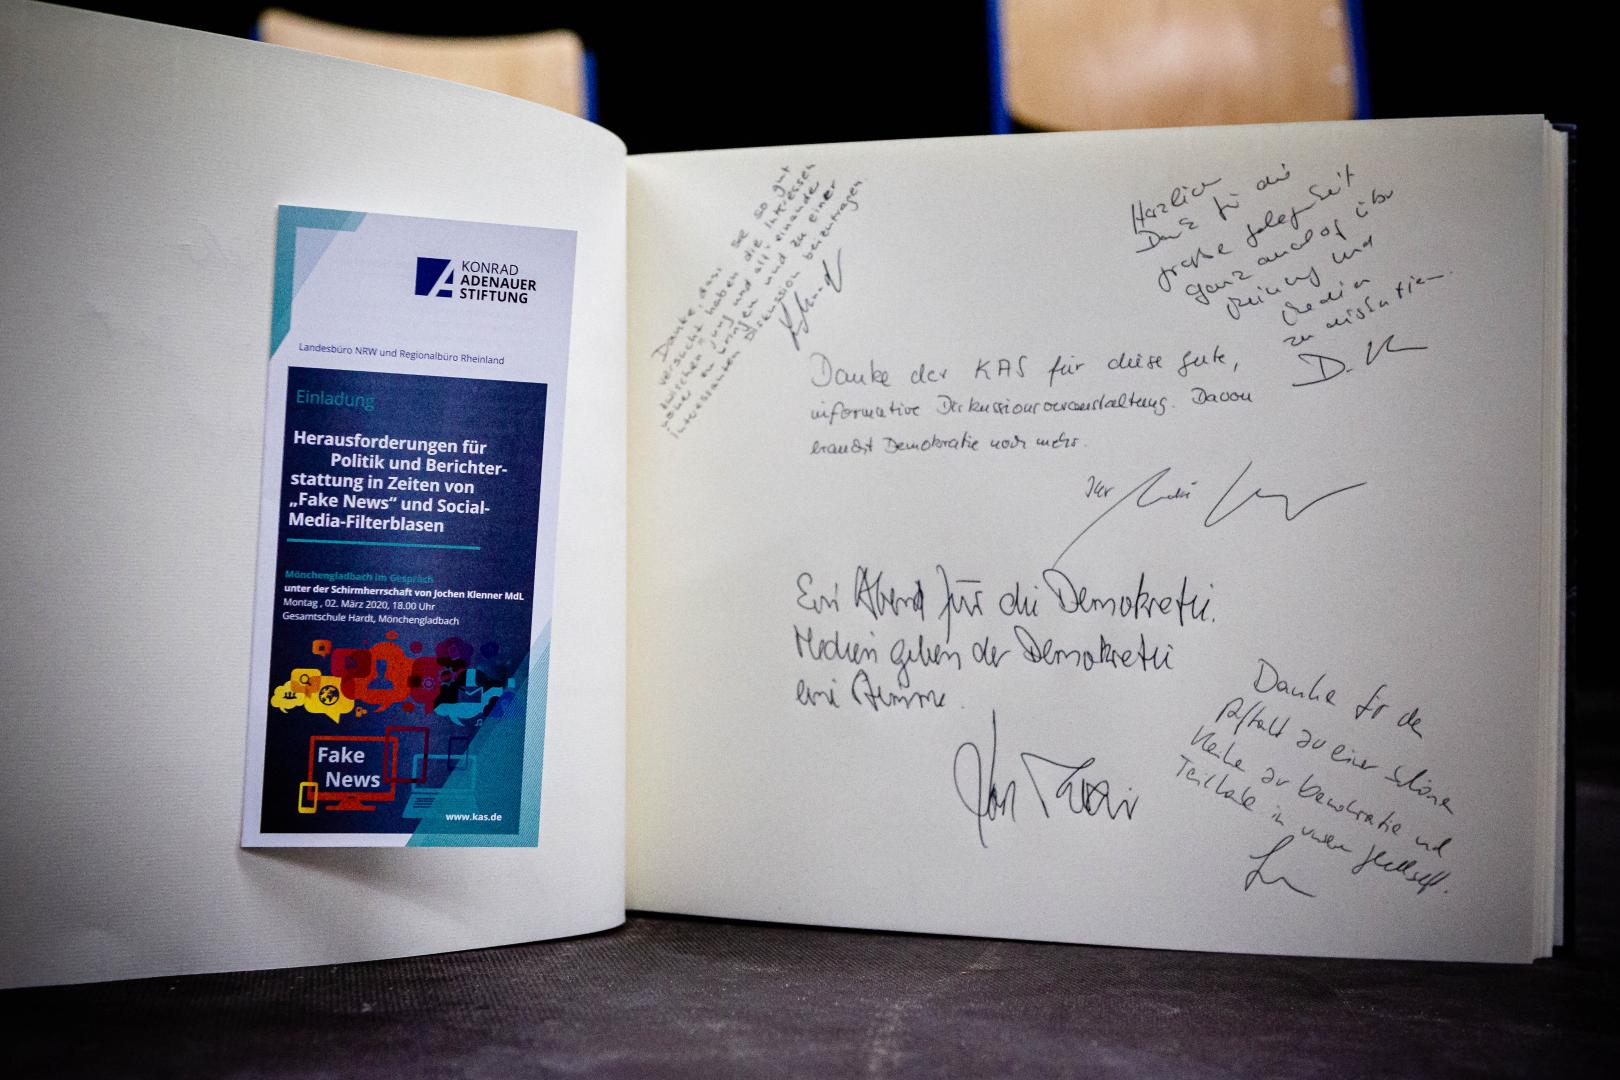 KONRAD
ADENAUER
STIFTUNG
Landesbüro NRW und Regionalbüro Rheinland
Einladung
Herausforderungen für
Politik und Berichter-
stattung in Zeiten von
„Fake News“ und Social-
Media-Filterblasen
Mönchengladbach im Gespräch
unter der Schirmherrschaft von Jochen Klenner MdL
Montag, 02. März 2020, 18.00 Uhr
Gesamtschule Hardt, Mönchengladbach
Fake
News
www.kas.de
Danke, dass Sie so gut
versucht haben die Interessen
zwischen "jung und alt" einander
näher zu bringen und zu einer
interessanten Diskussion beizutragen.
Herzlichen
Dank für die
große Gelegenheit
ganz analog über
Meinung und
Medien
zu diskutieren.
D.
Danke der KAS für diese gute,
informative Diskussionsveranstaltung. Davon
braucht Demokratie noch mehr.
Ihr
Ein Abend für die Demokratie.
Medien geben der Demokratie
eine Stimme.
Danke für den
Auftakt zu einer schönen
Reihe zu Demokratie und
Teilhabe in unserer Gesellschaft.